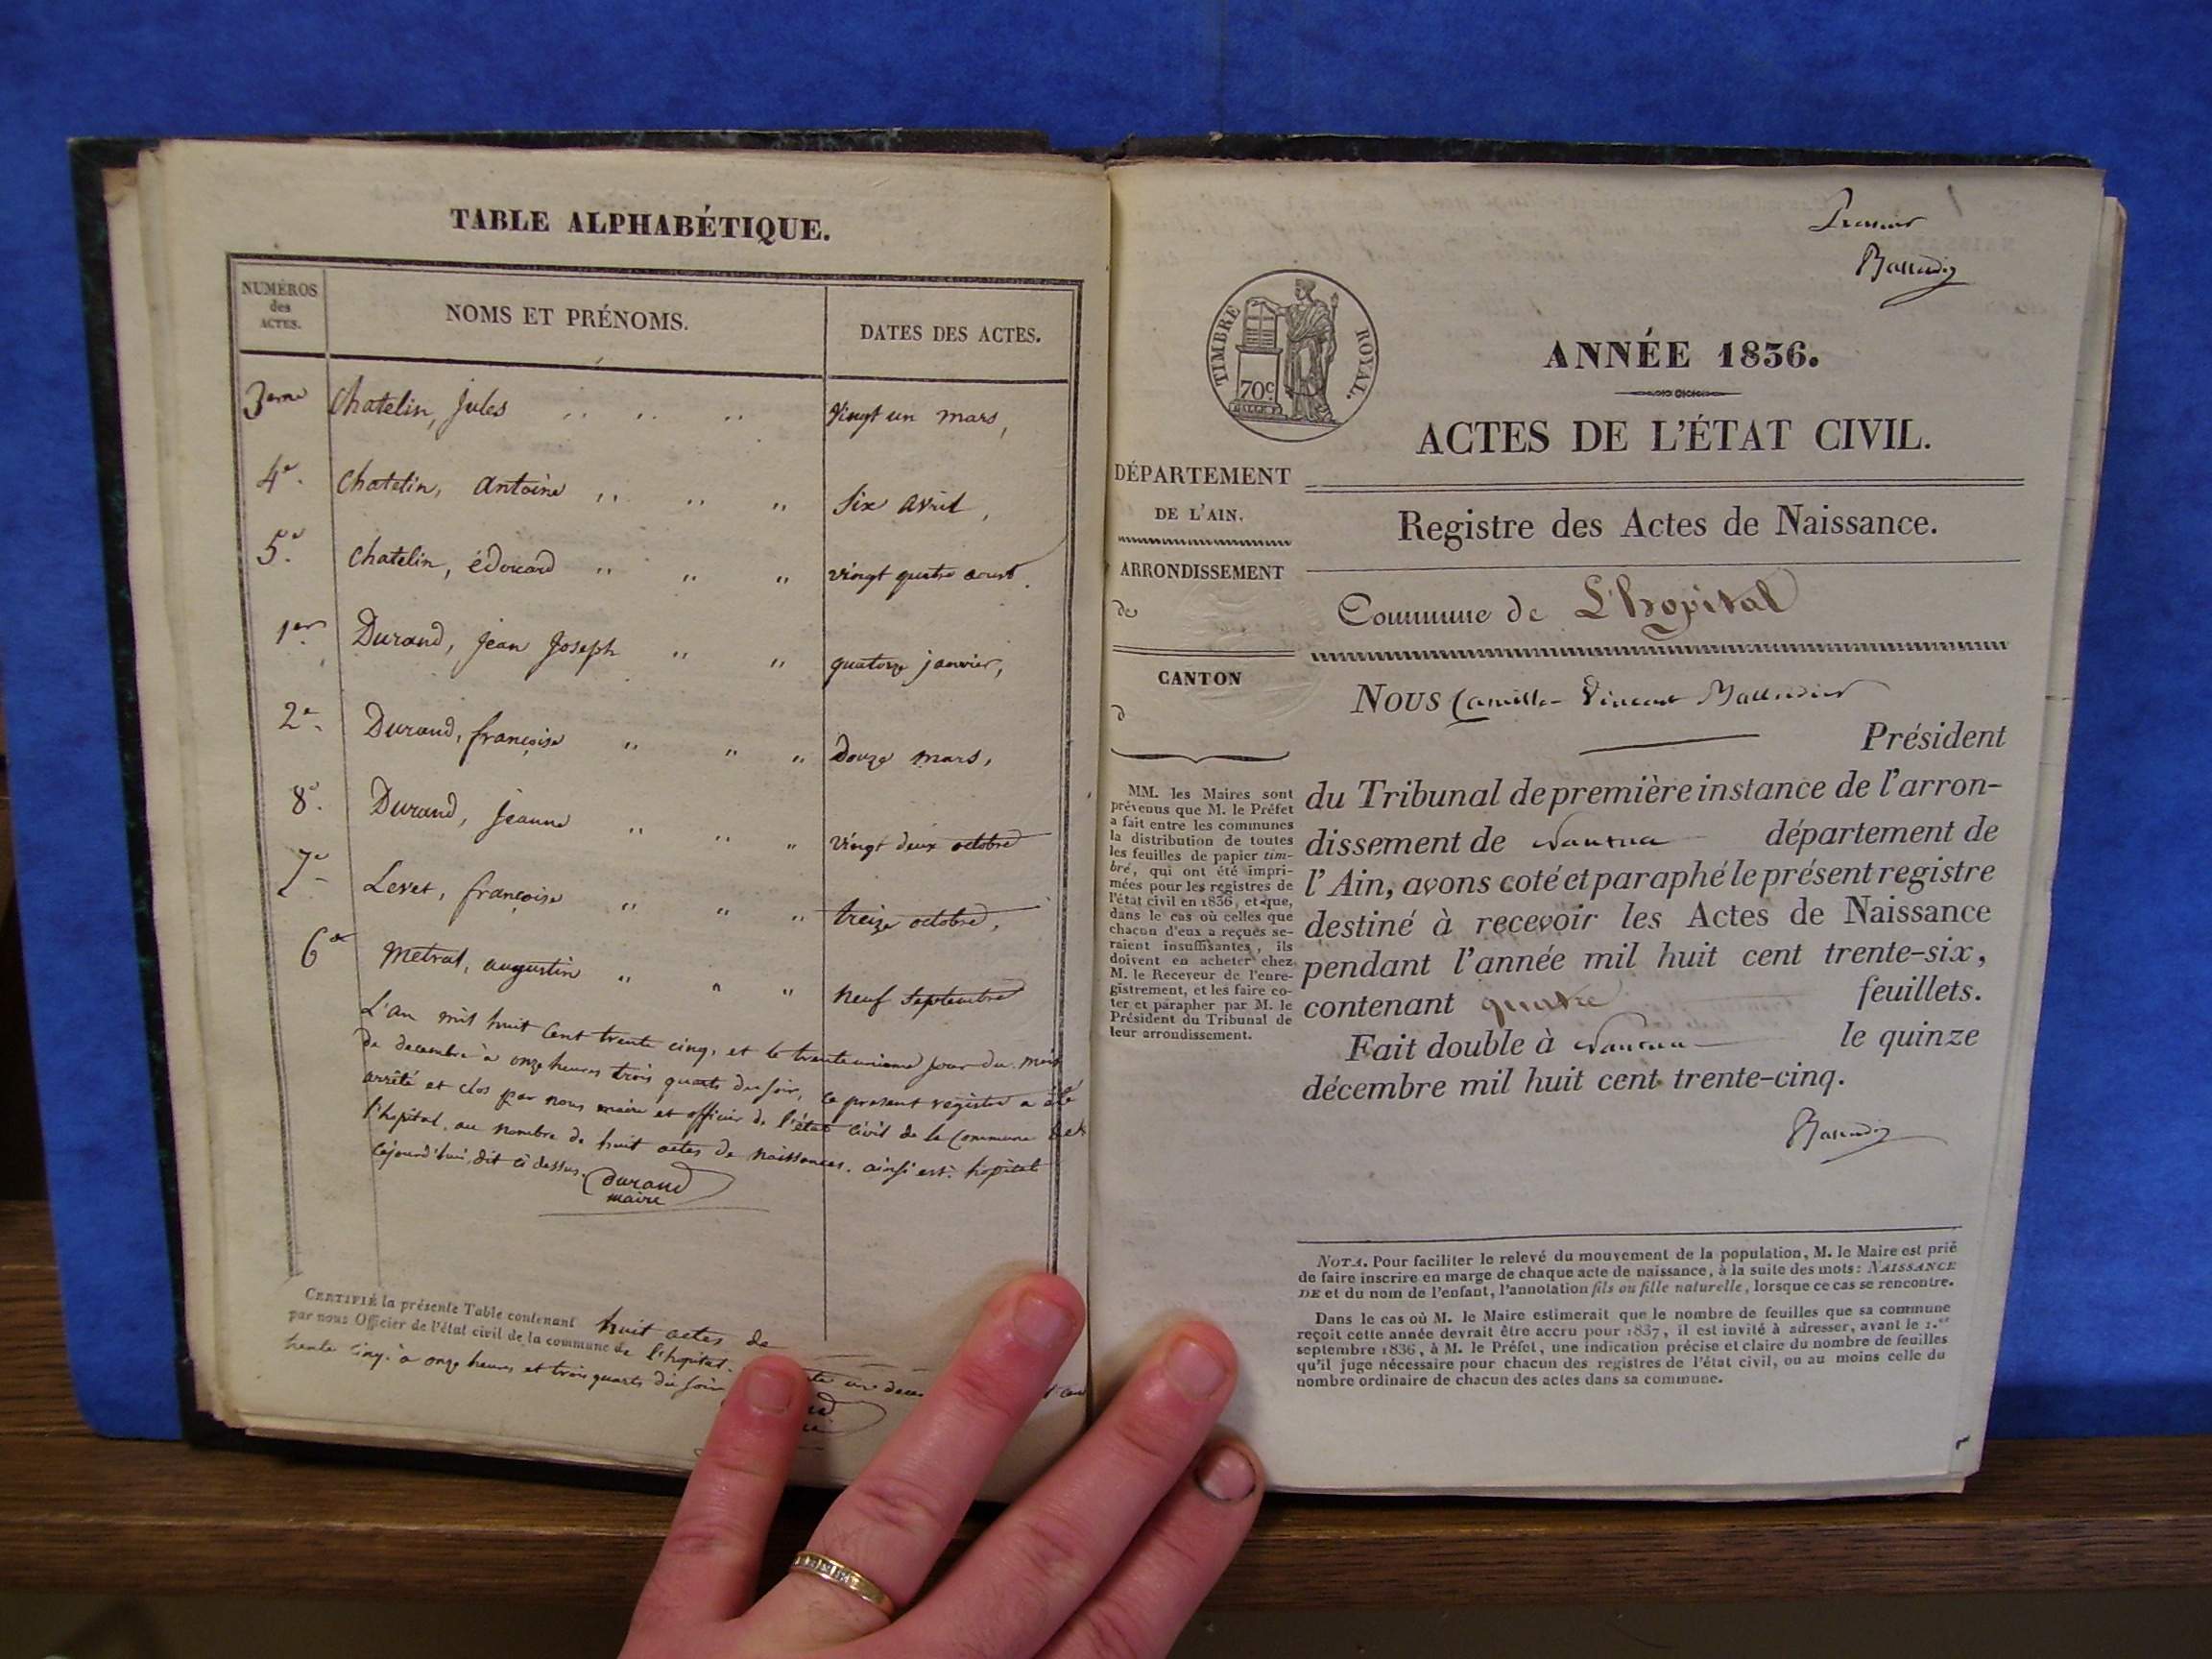 TABLE ALPHABÉTIQUE.
NUMÉROS
des
ACTES.
NOMS ET PRÉNOMS.
DATES DES ACTES.
3eme Chatelin, Jules " " " Vingt un mars,
4e. Chatelin, antoine " " " Six avril,
5e. Chatelin, édouard " " " vingt quatre aoust.
1er. Durand, jean Joseph " " quatorze janvier,
2e. Durand, françoise " " " douze mars,
8e. Durand, jeanne " " " vingt deux octobre
7e Levet, françoise " " " treize octobre,
6e Metral, augustin " " " neuf Septembre
L'an mil huit cent trente cinq, et le trente unieme jour du mois
de decembre à onze heures trois quarts du soir, ce present registre a été
arrêté et clos par nous maire et officier de l'état civil de la commune de
l'hopital, au nombre de huit actes de naissances. ainsi est. hopital
cejourd'hui dit ci dessus.
durand
maire
CERTIFIÉ la présente Table contenant huit actes de
par nous Officier de l'état civil de la commune de l'hopital.
trente cinq. à onze heures et trois quarts du soir
Premier
TIMBRE ROYAL.
70c
ANNÉE 1836.
ACTES DE L'ÉTAT CIVIL.
DÉPARTEMENT
DE L'AIN.
Registre des Actes de Naissance.
ARRONDISSEMENT
de
Commune de L'hopital
CANTON
d
Nous Camille-Vincent
Président
du Tribunal de première instance de l'arron-
dissement de Nantua département de
l'Ain, avons coté et paraphé le présent registre
destiné à recevoir les Actes de Naissance
pendant l'année mil huit cent trente-six,
contenant quatre feuillets.
Fait double à Nantua le quinze
décembre mil huit cent trente-cinq.
MM. les Maires sont
prévenus que M. le Préfet
a fait entre les communes
la distribution de toutes
les feuilles de papier tim-
bré, qui ont été impri-
mées pour les registres de
l'état civil en 1836, et que,
dans le cas où celles que
chacun d'eux a reçues se-
raient insuffisantes, ils
doivent en acheter chez
M. le Receveur de l'enre-
gistrement, et les faire co-
ter et parapher par M. le
Président du Tribunal de
leur arrondissement.
NOTA. Pour faciliter le relevé du mouvement de la population, M. le Maire est prié
de faire inscrire en marge de chaque acte de naissance, à la suite des mots: NAISSANCE
DE et du nom de l'enfant, l'annotation fils ou fille naturelle, lorsque ce cas se rencontre.
Dans le cas où M. le Maire estimerait que le nombre de feuilles que sa commune
reçoit cette année devrait être accru pour 1837, il est invité à adresser, avant le 1.er
septembre 1836, à M. le Préfet, une indication précise et claire du nombre de feuilles
qu'il juge nécessaire pour chacun des registres de l'état civil, ou au moins celle du
nombre ordinaire de chacun des actes dans sa commune.